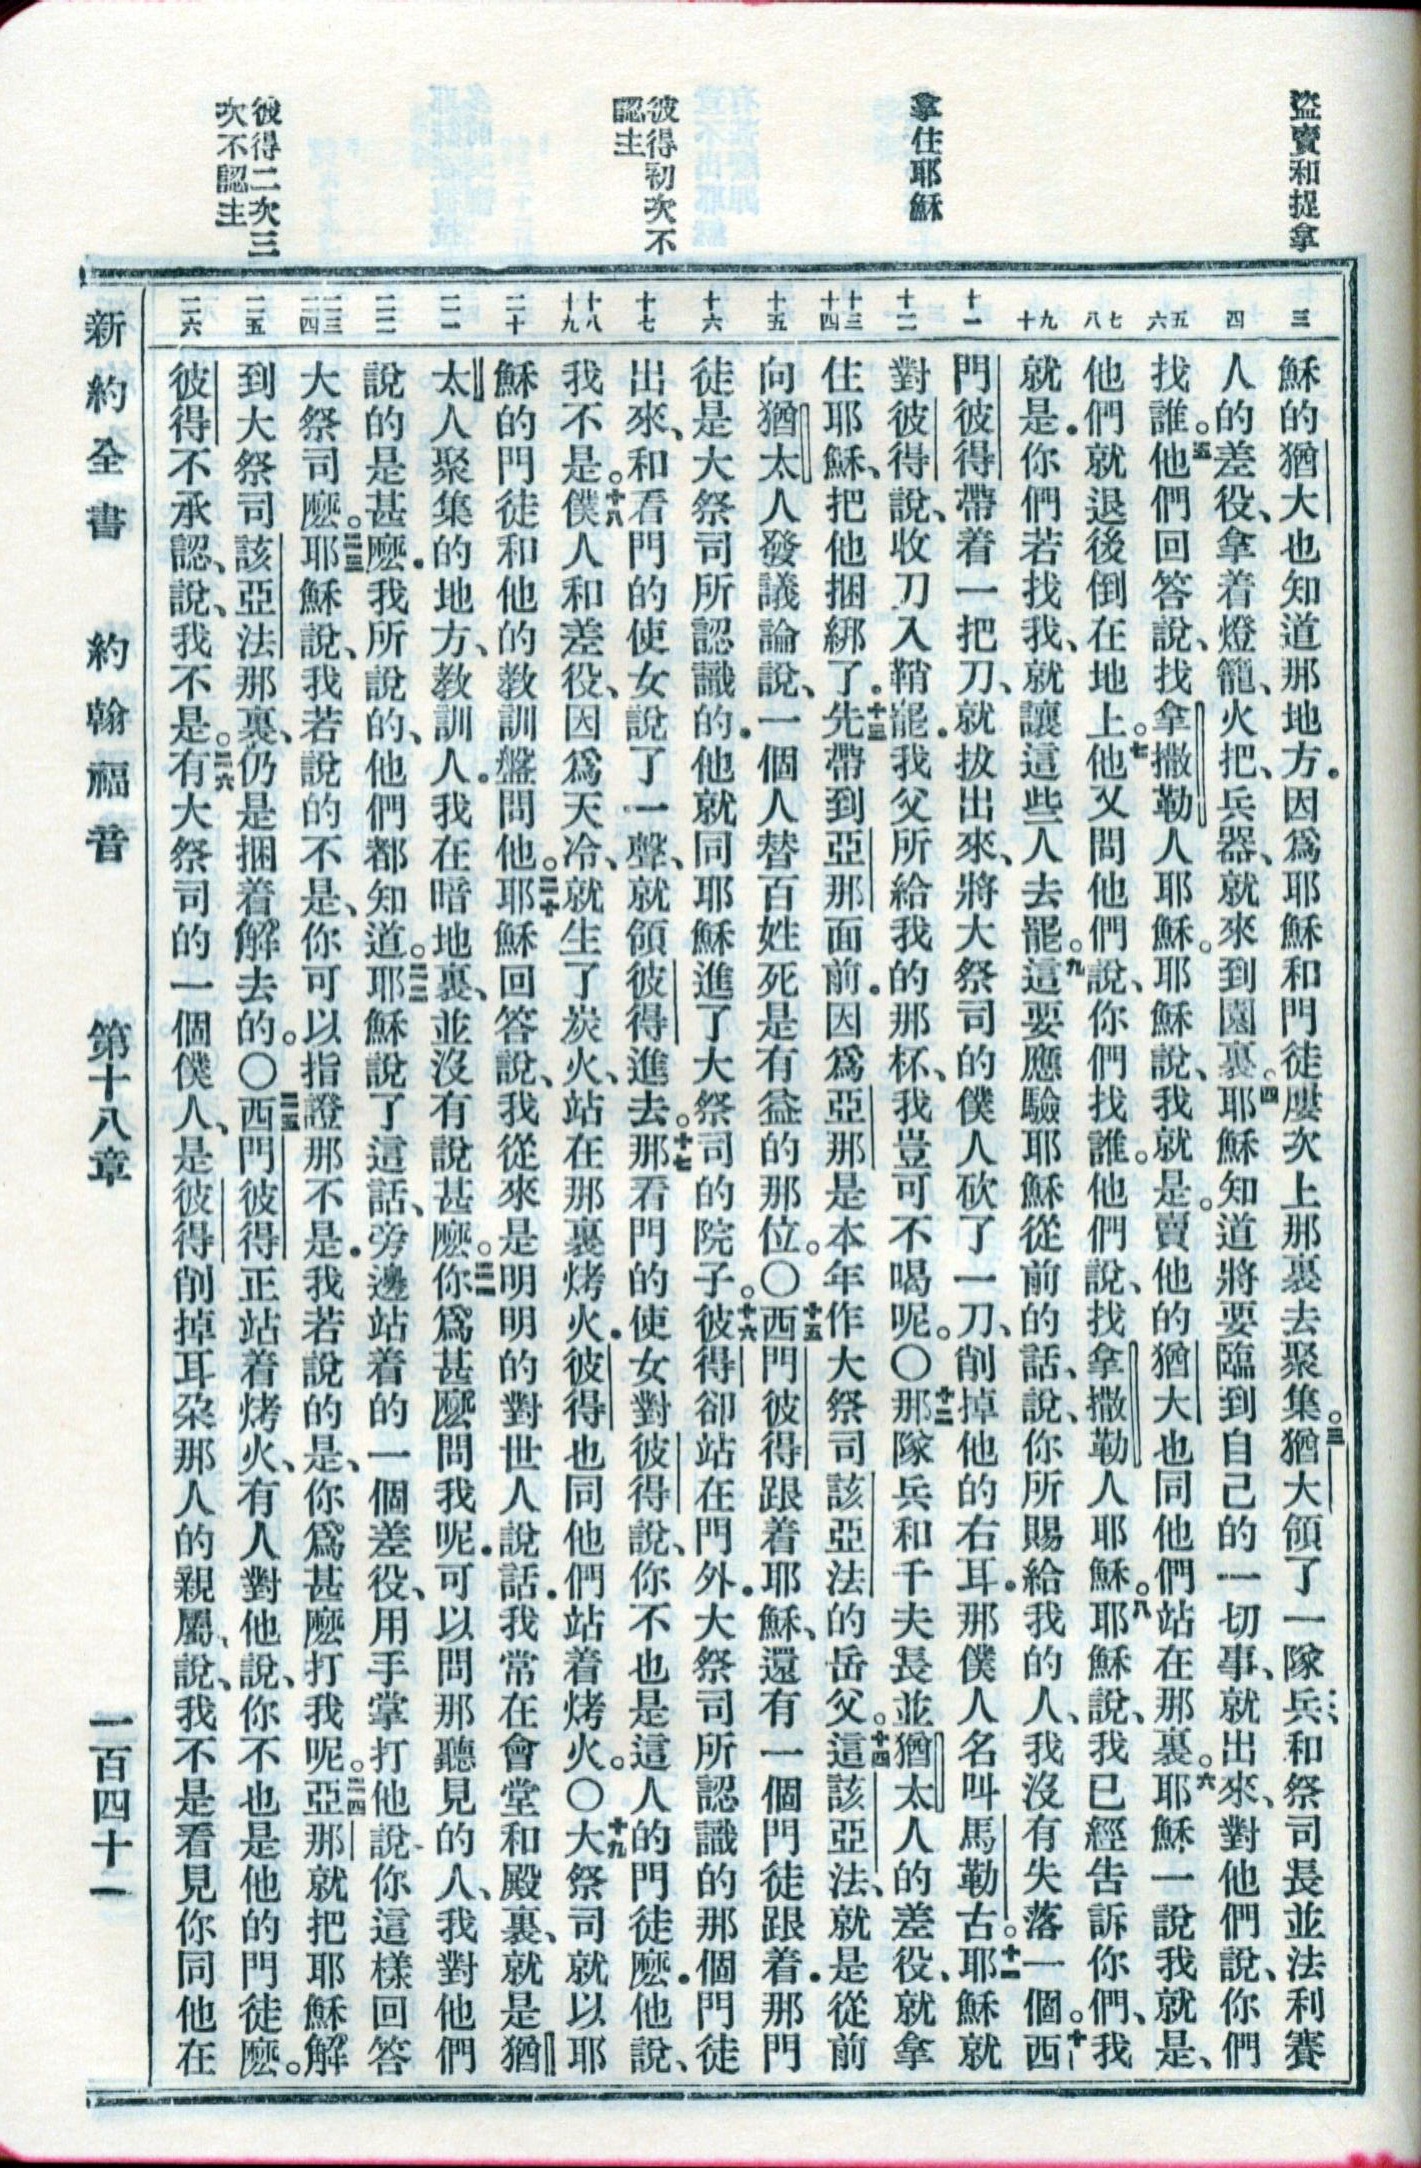 盜賣和捉拿
拿住耶穌
彼得初次不
認主
彼得二次三
次不認主
三
四
五
六
七
八
九
十
十一
十二
十三
十四
十五
十六
十七
十八
十九
二十
二一
二二
二三
二四
二五
二六
穌的猶大也知道那地方．因爲耶穌和門徒屢次上那裏去聚集。三猶大領了一隊兵、和祭司長並法利賽
人的差役、拿着燈籠、火把、兵器、就來到園裏。四耶穌知道將要臨到自己的一切事、就出來、對他們說、你們
找誰。五他們回答說、找拿撒勒人耶穌。耶穌說、我就是。賣他的猶大也同他們站在那裏。六耶穌一說我就是、
他們就退後倒在地上。七他又問他們說、你們找誰。他們說、找拿撒勒人耶穌。八耶穌說、我已經告訴你們、我
就是．你們若找我、就讓這些人去罷。九這要應驗耶穌從前的話、說、你所賜給我的人、我沒有失落一個。十西
門彼得帶着一把刀、就拔出來、將大祭司的僕人砍了一刀、削掉他的右耳．那僕人名叫馬勒古。十一耶穌就
對彼得說、收刀入鞘罷．我父所給我的那杯、我豈可不喝呢。〇十二那隊兵和千夫長並猶太人的差役、就拿
住耶穌、把他捆綁了．十三先帶到亞那面前．因爲亞那是本年作大祭司該亞法的岳父。十四這該亞法、就是從前
向猶太人發議論說、一個人替百姓死是有益的那位。〇十五西門彼得跟着耶穌、還有一個門徒跟着．那門
徒是大祭司所認識的．他就同耶穌進了大祭司的院子。十六彼得卻站在門外．大祭司所認識的那個門徒
出來、和看門的使女說了一聲、就領彼得進去。十七那看門的使女對彼得說、你不也是這人的門徒麽．他說、
我不是。十八僕人和差役、因爲天冷、就生了炭火、站在那裏烤火．彼得也同他們站着烤火。〇十九大祭司就以耶
穌的門徒和他的教訓盤問他。二十耶穌回答說、我從來是明明的對世人說話．我常在會堂和殿裏、就是猶
太人聚集的地方、教訓人．我在暗地裏、並沒有說甚麽。二一你爲甚麽問我呢．可以問那聽見的人、我對他們
說的是甚麽．我所說的、他們都知道。二二耶穌說了這話、旁邊站着的一個差役、用手掌打他說、你這樣回答
大祭司麽。二三耶穌說、我若說的不是、你可以指證那不是．我若說的是、你爲甚麽打我呢。二四亞那就把耶穌解
到大祭司該亞法那裏、仍是捆着解去的。〇二五西門彼得正站着烤火、有人對他說、你不也是他的門徒麽。
彼得不承認、說、我不是。二六有大祭司的一個僕人、是彼得削掉耳朵那人的親屬、說、我不是看見你同他在
新約全書　約翰福音　第十八章　一百四十一